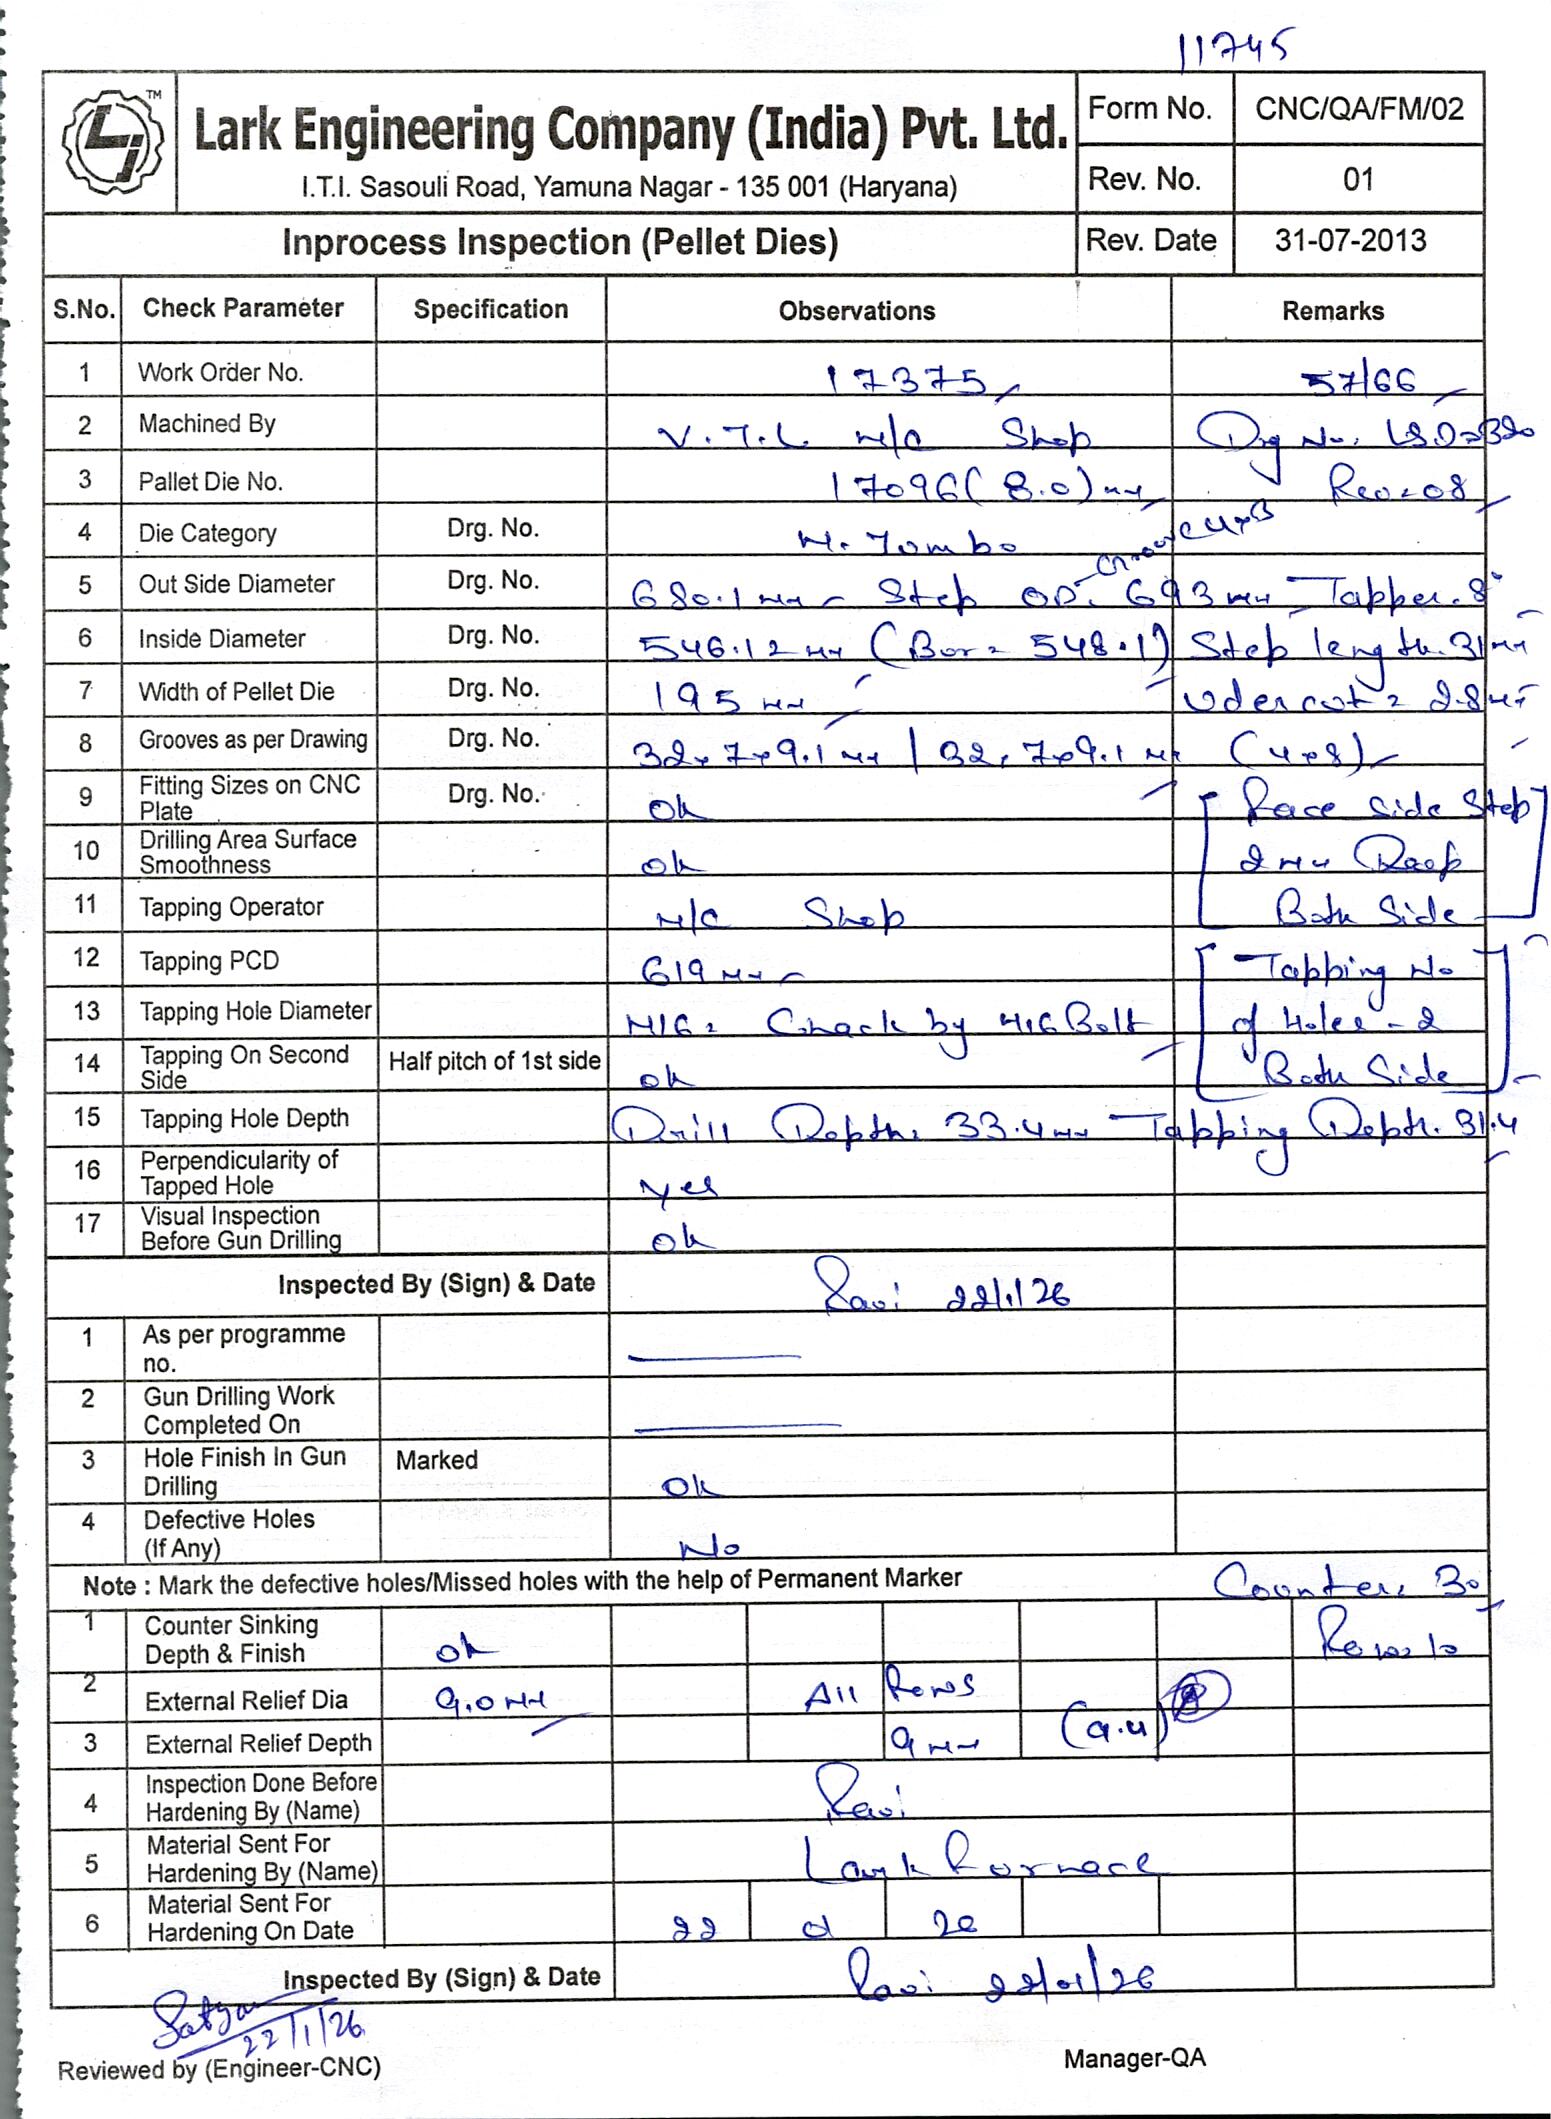 11745
TM
Lark Engineering Company (India) Pvt. Ltd.
I.T.I. Sasouli Road, Yamuna Nagar - 135 001 (Haryana)
Form No. CNC/QA/FM/02
Rev. No. 01
Inprocess Inspection (Pellet Dies)
Rev. Date 31-07-2013
S.No. Check Parameter Specification Observations Remarks
1 Work Order No. 17375 57/66
2 Machined By V.T.L M/C Shop Drg No.
3 Pallet Die No. 17096 (8.0) mm Rev-08
4 Die Category Drg. No. M. Jumbo
Groove 4x8
5 Out Side Diameter Drg. No. 680.1 mm - Step OD. 693 mm Tapper. 8°
6 Inside Diameter Drg. No. 546.12 mm (Bor= 548.1) Step length. 31 mm
7 Width of Pellet Die Drg. No. 195 mm Udercut = 2.8 mm
8 Grooves as per Drawing Drg. No. 32x7x9.1 mm / 32x7x9.1 mm (4x8)
9 Fitting Sizes on CNC Plate Drg. No. Ok Face Side Step
10 Drilling Area Surface Smoothness Ok 2 mm Deep
11 Tapping Operator M/C Shop Both Side
12 Tapping PCD 619 mm Tapping No
13 Tapping Hole Diameter M16= Chack by M16 Bolt of Holes - 2
14 Tapping On Second Side Half pitch of 1st side Ok Both Side
15 Tapping Hole Depth Drill Depth. 33.4 mm Tapping Depth. 31.4
16 Perpendicularity of Tapped Hole Yes
17 Visual Inspection Before Gun Drilling Ok
Inspected By (Sign) & Date Ravi 22/1/26
1 As per programme no.
2 Gun Drilling Work Completed On
3 Hole Finish In Gun Drilling Marked Ok
4 Defective Holes (If Any) No
Note : Mark the defective holes/Missed holes with the help of Permanent Marker Counter. 30
1 Counter Sinking Depth & Finish Ok
2 External Relief Dia 9.0 mm All Rows
3 External Relief Depth 9 mm (9.4)
4 Inspection Done Before Hardening By (Name) Ravi
5 Material Sent For Hardening By (Name) Lark Furnace
6 Material Sent For Hardening On Date 22 01 26
Inspected By (Sign) & Date Ravi 22/01/26
Satyam
22/1/26
Reviewed by (Engineer-CNC) Manager-QA